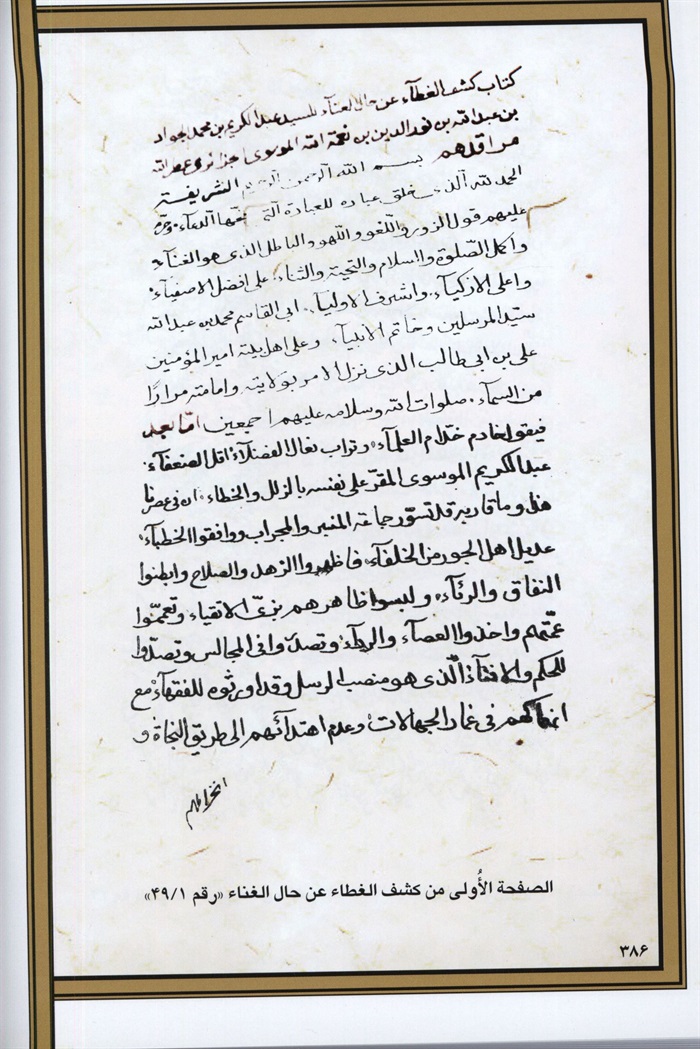 كتاب كشف الغطآء عن حال الغنآء للسيد عبد الكريم بن محمد الجواد
بن عبد الله بن نور الدين بن نعمة الله الموسوى الجزائرى عطر الله
مراقدهم بسم الله الرحمن الرحيم الشريفة
الحمد لله الذى خلق عباده للعبادة التى الدعآء وحرم
عليهم قول الزور واللغو واللهو والباطل الذى هو الغنآء
واكمل الصّلوة والسلام والتحية والثنآء على افضل الاصفيآء
واعلى الازكيآء واشرف الاوليآء ابى القاسم محمد بن عبد الله
سيّد المرسلين وخاتم الانبيآء وعلى اهل بيته امير المؤمنين
على بن ابى طالب الذى نزل الامر بولايته وامامته مرارًا
من السمآء صلوات الله وسلامه عليهم اجمعين امّا بعد
فيقول خادم خدّام العلمآء وتراب نعال الفضلآء اقل الضعفآء
عبد الكريم الموسوى المقرّ على نفسه بالزلل والخطاء ان فى عصرنا
هذا وما قاربه قد تسوّر جماعة المنبر والمحراب ووافقوا الخطبآء
عديل اهل الجور من الخلفآء فاظهروا الزهد والصلاح وابطنوا
النفاق والرئآء ولبسوا ظاهرهم بزىّ الاتقياء وتعمّموا
عمّتهم واخذوا العصآء والردآء وتصدّروا فى المجالس وتصدّوا
للحكم والافتآء الّذى هو منصب الرسل وقد اورثوه للفقهآء مع
انهماكهم فى غمار الجهالات وعدم اهتدائهم الى طريق النجاة و
انخراطهم
الصفحة الأُولى من كشف الغطاء عن حال الغناء «رقم ۴۹/۱»
۳۸۶